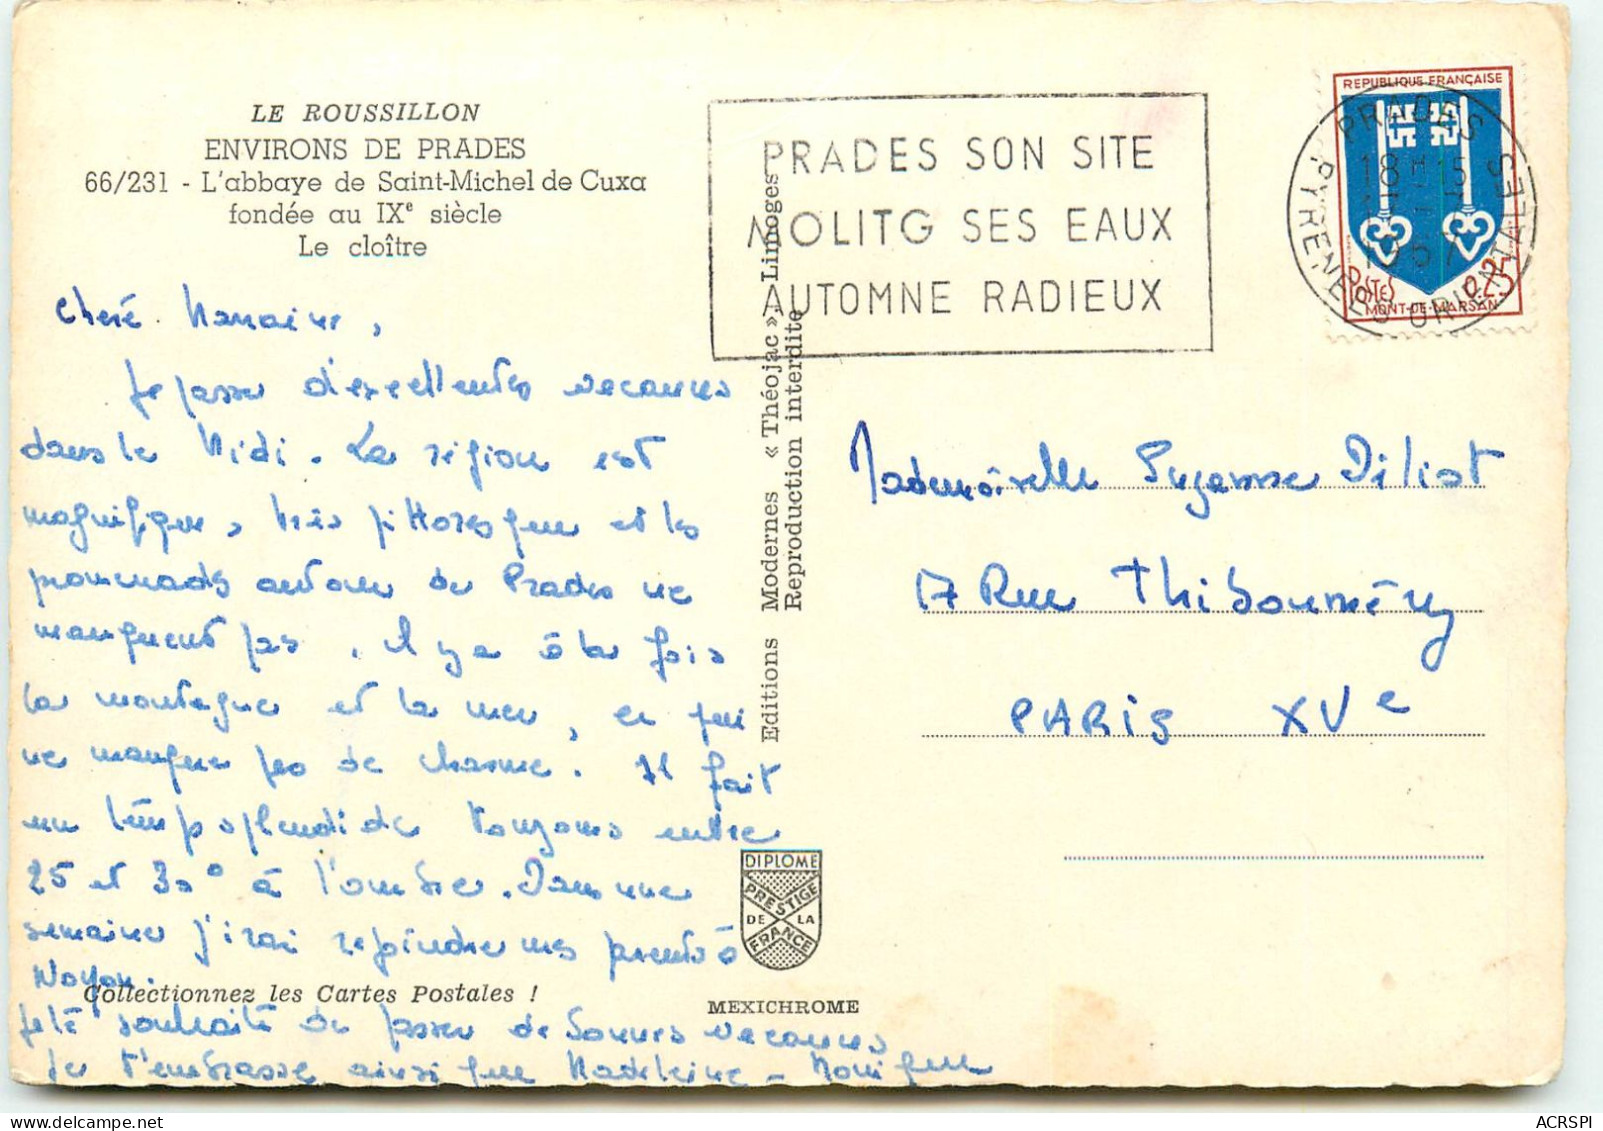 LE ROUSSILLON
ENVIRONS DE PRADES
66/231 - L'abbaye de Saint-Michel de Cuxa
fondée au IXe siècle
Le cloître
PRADES SON SITE
MOLITG SES EAUX
AUTOMNE RADIEUX
REPUBLIQUE FRANÇAISE
POSTES 0,25
MONT-DE-MARSAN
PRADES
18H15
1967
PYRENEES ORIENTALES
Editions Modernes « Théojac » Limoges
Reproduction interdite
Chère
Je passe d'excellentes vacances
dans le Midi. La région est
magnifique, très pittoresque et les
promenades autour de Prades ne
manquent pas. Il y a à la fois
la montagne et la mer, ce qui
ne manque pas de charme. Il fait
un temps splendide toujours entre
25 et 30° à l'ombre. Dans une
semaine j'irai rejoindre mes parents à
Noyon.
Je te souhaite de passer de bonnes vacances
Je t'embrasse ainsi que Madeleine - Monique
Mademoiselle Suzanne
17 Rue Thiboumery
PARIS XVe
DIPLOME
PRESTIGE
DE LA
FRANCE
Collectionnez les Cartes Postales !
MEXICHROME
ACRSPI